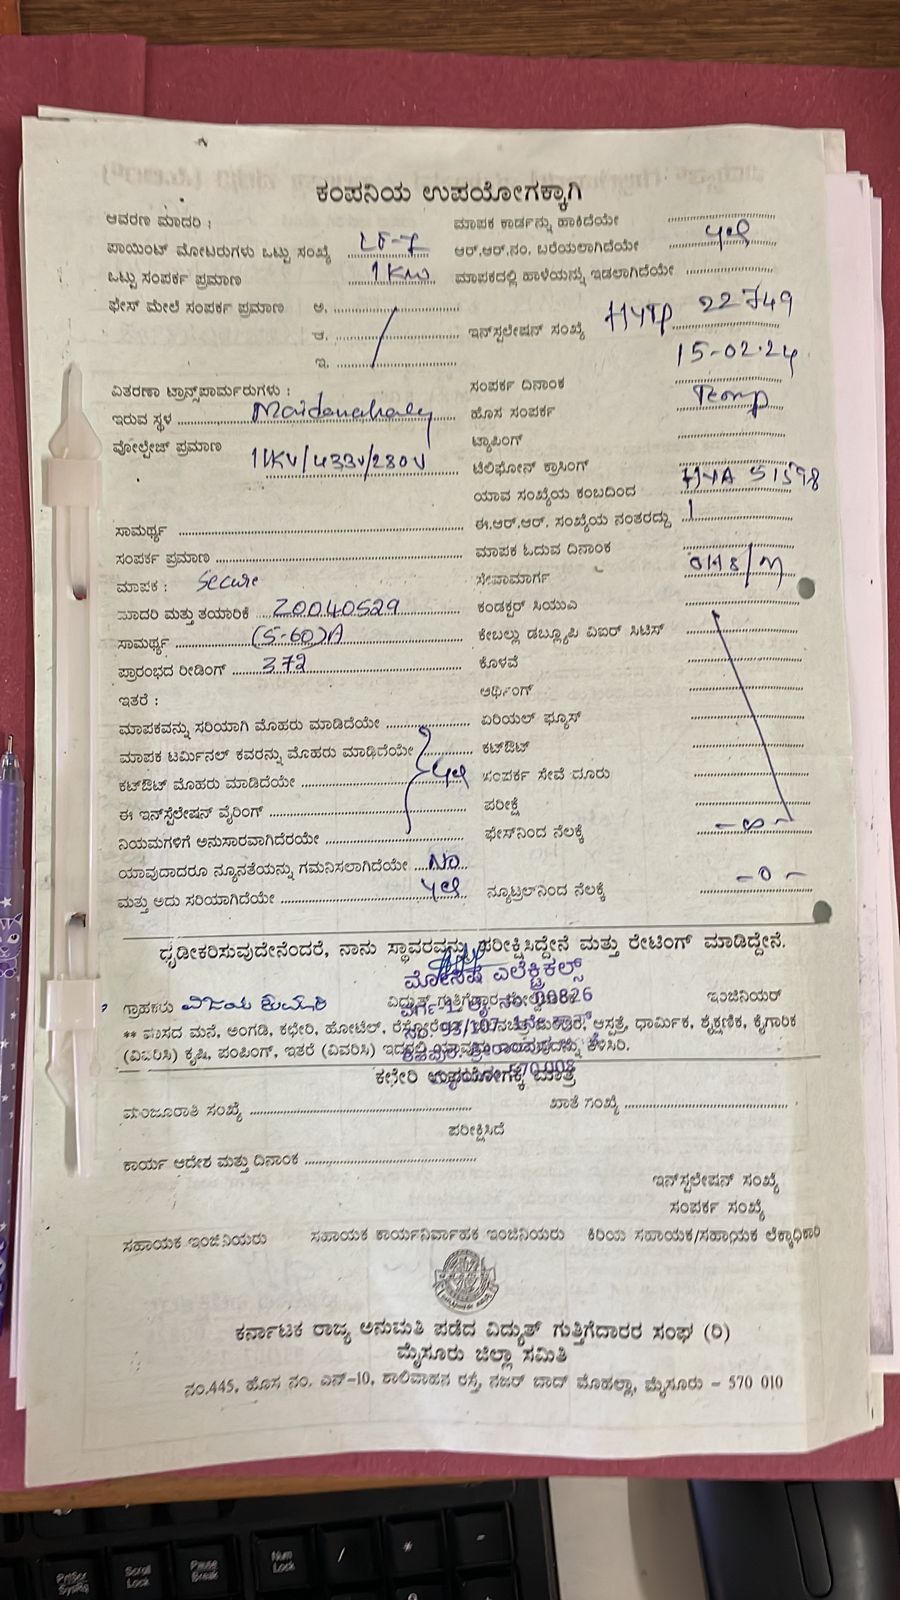 ಕಂಪನಿಯ ಉಪಯೋಗಕ್ಕಾಗಿ
ಆವರಣ ಮಾದರಿ :
ಮಾಪಕ ಕಾರ್ಡನ್ನು ಹಾಕಿದೆಯೇ
ಪಾಯಿಂಟ್ ಮೋಟರುಗಳು ಒಟ್ಟು ಸಂಖ್ಯೆ LT-7
ಆರ್.ಆರ್.ನಂ. ಬರೆಯಲಾಗಿದೆಯೇ yes
ಒಟ್ಟು ಸಂಪರ್ಕ ಪ್ರಮಾಣ 1 KW
ಮಾಪಕದಲ್ಲಿ ಹಾಳೆಯನ್ನು ಇಡಲಾಗಿದೆಯೇ
ಫೇಸ್ ಮೇಲೆ ಸಂಪರ್ಕ ಪ್ರಮಾಣ ಅ.
ಆ.
ಇ.
ಇನ್‌ಸ್ಟಲೇಷನ್ ಸಂಖ್ಯೆ HYTP 22749
15-02-24
ವಿತರಣಾ ಟ್ರಾನ್ಸ್‌ಪಾರ್ಮರುಗಳು :
ಸಂಪರ್ಕ ದಿನಾಂಕ
ಇರುವ ಸ್ಥಳ Maidanahaly
ಹೊಸ ಸಂಪರ್ಕ Temp
ವೋಲ್ಟೇಜ್ ಪ್ರಮಾಣ 11KV/433V/230V
ಟ್ಯಾಪಿಂಗ್
ಟೆಲಿಫೋನ್ ಕ್ರಾಸಿಂಗ್
ಯಾವ ಸಂಖ್ಯೆಯ ಕಂಬದಿಂದ HYA 51598
ಸಾಮರ್ಥ್ಯ
ಈ.ಆರ್.ಆರ್. ಸಂಖ್ಯೆಯ ನಂತರದ್ದು 1
ಸಂಪರ್ಕ ಪ್ರಮಾಣ
ಮಾಪಕ ಓದುವ ದಿನಾಂಕ
ಮಾಪಕ : Secure
ಸೇವಾಮಾರ್ಗ
ಮಾದರಿ ಮತ್ತು ತಯಾರಿಕೆ 20040529
ಕಂಡಕ್ಟರ್ ಸಿಯುಎ
ಸಾಮರ್ಥ್ಯ (5-60)A
ಕೇಬಲ್ಲು ಡಬ್ಲ್ಯೂಪಿ ವಿಐರ್ ಸಿಟಿಸ್
ಪ್ರಾರಂಭದ ರೀಡಿಂಗ್ 372
ಕೊಳವೆ
ಇತರೆ :
ಆರ್ಥಿಂಗ್
ಮಾಪಕವನ್ನು ಸರಿಯಾಗಿ ಮೊಹರು ಮಾಡಿದೆಯೇ
ಏರಿಯಲ್ ಫ್ಯೂಸ್
ಮಾಪಕ ಟರ್ಮಿನಲ್ ಕವರನ್ನು ಮೊಹರು ಮಾಡಿದೆಯೇ
ಕಟ್‌ಔಟ್
ಕಟ್‌ಔಟ್ ಮೊಹರು ಮಾಡಿದೆಯೇ yes
ಸಂಪರ್ಕ ಸೇವೆ ದೂರು
ಈ ಇನ್‌ಸ್ಟೆಲೇಷನ್ ವೈರಿಂಗ್
ಪರೀಕ್ಷೆ
ನಿಯಮಗಳಿಗೆ ಅನುಸಾರವಾಗಿದೆರಯೇ
ಫೇಸ್‌ನಿಂದ ನೆಲಕ್ಕೆ – ∞ –
ಯಾವುದಾದರೂ ನ್ಯೂನತೆಯನ್ನು ಗಮನಿಸಲಾಗಿದೆಯೇ NO
ಮತ್ತು ಅದು ಸರಿಯಾಗಿದೆಯೇ yes
ನ್ಯೂಟ್ರಲ್‌ನಿಂದ ನೆಲಕ್ಕೆ – 0 –
ಧೃಡೀಕರಿಸುವುದೇನೆಂದರೆ, ನಾನು ಸ್ಥಾವರವನ್ನು ಪರೀಕ್ಷಿಸಿದ್ದೇನೆ ಮತ್ತು ರೇಟಿಂಗ್ ಮಾಡಿದ್ದೇನೆ.
ಎಲೆಕ್ಟ್ರಿಕಲ್ಸ್
ಗ್ರಾಹಕರು ವಿಜಯ ಕುಮಾರಿ
ವಿದ್ಯುತ್ ಗುತ್ತಿಗೆದಾರ
ಇಂಜಿನಿಯರ್
** ವಾಸದ ಮನೆ, ಅಂಗಡಿ, ಕಛೇರಿ, ಹೋಟೆಲ್, ಆಸ್ಪತ್ರೆ, ಧಾರ್ಮಿಕ, ಶೈಕ್ಷಣಿಕ, ಕೈಗಾರಿಕ
(ವಿವರಿಸಿ) ಕೃಷಿ, ಪಂಪಿಂಗ್, ಇತರೆ (ವಿವರಿಸಿ) ಇದರಲ್ಲಿ ತಿಳಿಸಿರಿ.
ಕಛೇರಿ ಉಪಯೋಗಕ್ಕೆ ಮಾತ್ರ
ಮಂಜೂರಾತಿ ಸಂಖ್ಯೆ
ಖಾತೆ ಸಂಖ್ಯೆ
ಪರೀಕ್ಷಿಸಿದೆ
ಕಾರ್ಯ ಆದೇಶ ಮತ್ತು ದಿನಾಂಕ
ಇನ್‌ಸ್ಟಲೇಷನ್ ಸಂಖ್ಯೆ
ಸಂಪರ್ಕ ಸಂಖ್ಯೆ
ಸಹಾಯಕ ಇಂಜಿನಿಯರು ಸಹಾಯಕ ಕಾರ್ಯನಿರ್ವಾಹಕ ಇಂಜಿನಿಯರು ಕಿರಿಯ ಸಹಾಯಕ/ಸಹಾಯಕ ಲೆಕ್ಕಾಧಿಕಾರಿ
ಕರ್ನಾಟಕ ರಾಜ್ಯ ಅನುಮತಿ ಪಡೆದ ವಿದ್ಯುತ್ ಗುತ್ತಿಗೆದಾರರ ಸಂಘ (ರಿ)
ಮೈಸೂರು ಜಿಲ್ಲಾ ಸಮಿತಿ
ನಂ.445, ಹೊಸ ನಂ. ಎನ್-10, ಶಾಲಿವಾಹನ ರಸ್ತೆ, ನಜರ್ ಬಾದ್ ಮೊಹಲ್ಲಾ, ಮೈಸೂರು – 570 010
PrtScr
SysRq
Scroll
Lock
Pause
Break
Num
Lock
/
*
-